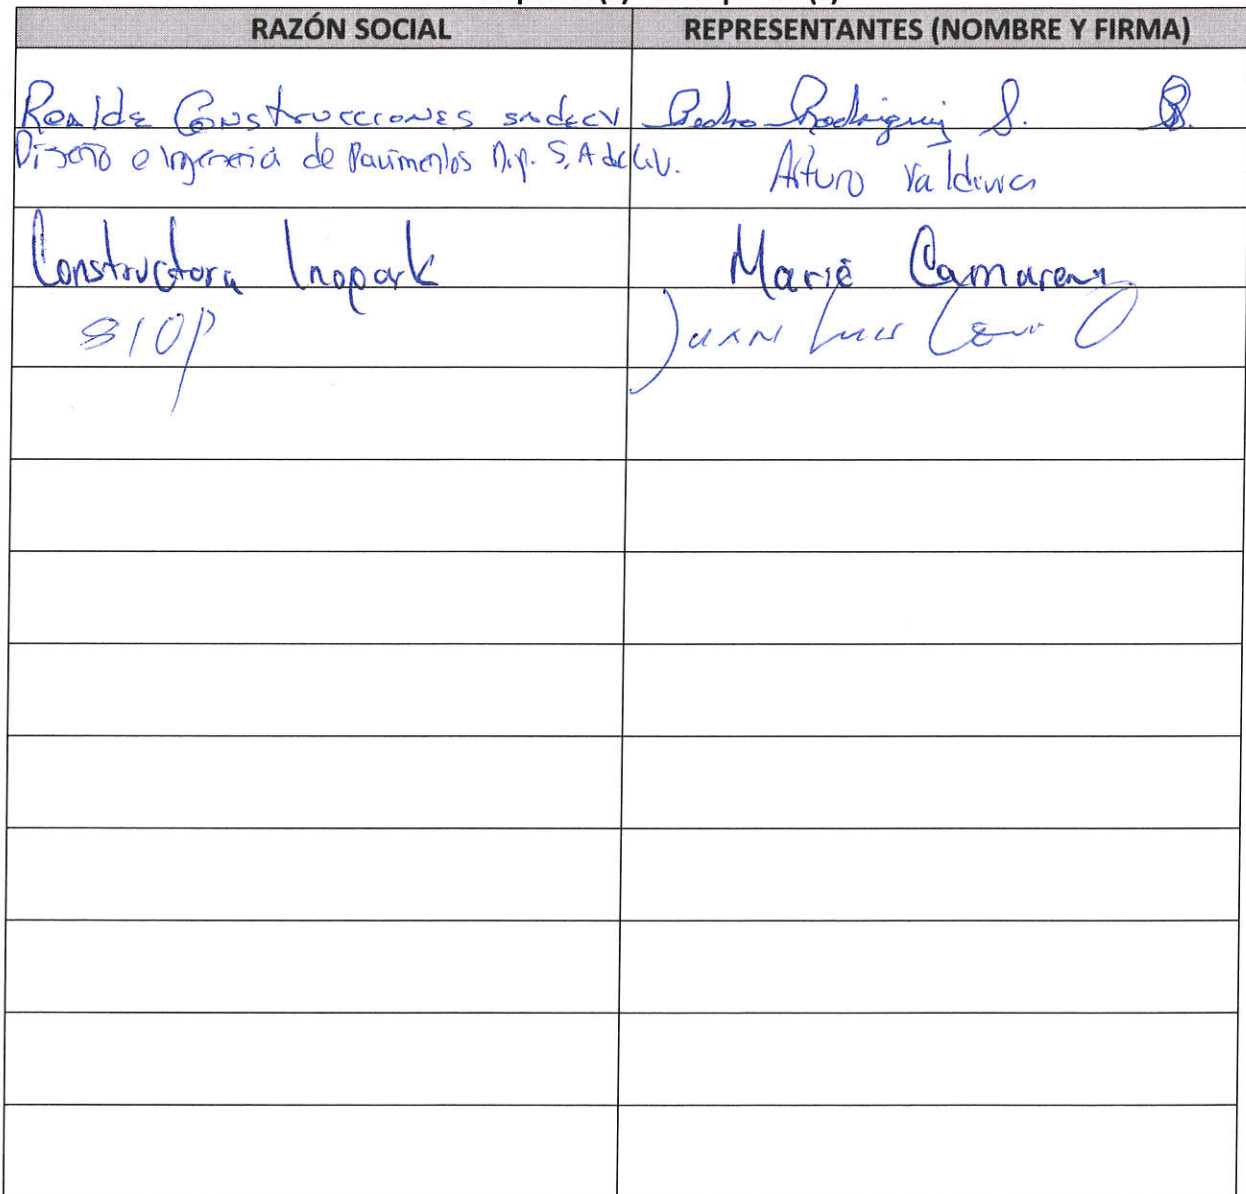 RAZÓN SOCIAL REPRESENTANTES (NOMBRE Y FIRMA)
Realde Construcciones sadecv Pedro Rodriguez S.
Diseño e Ingenieria de Pavimentos S.A de C.V. Arturo
Constructora Inopark Marié Camarena
SIOP Juan Luis